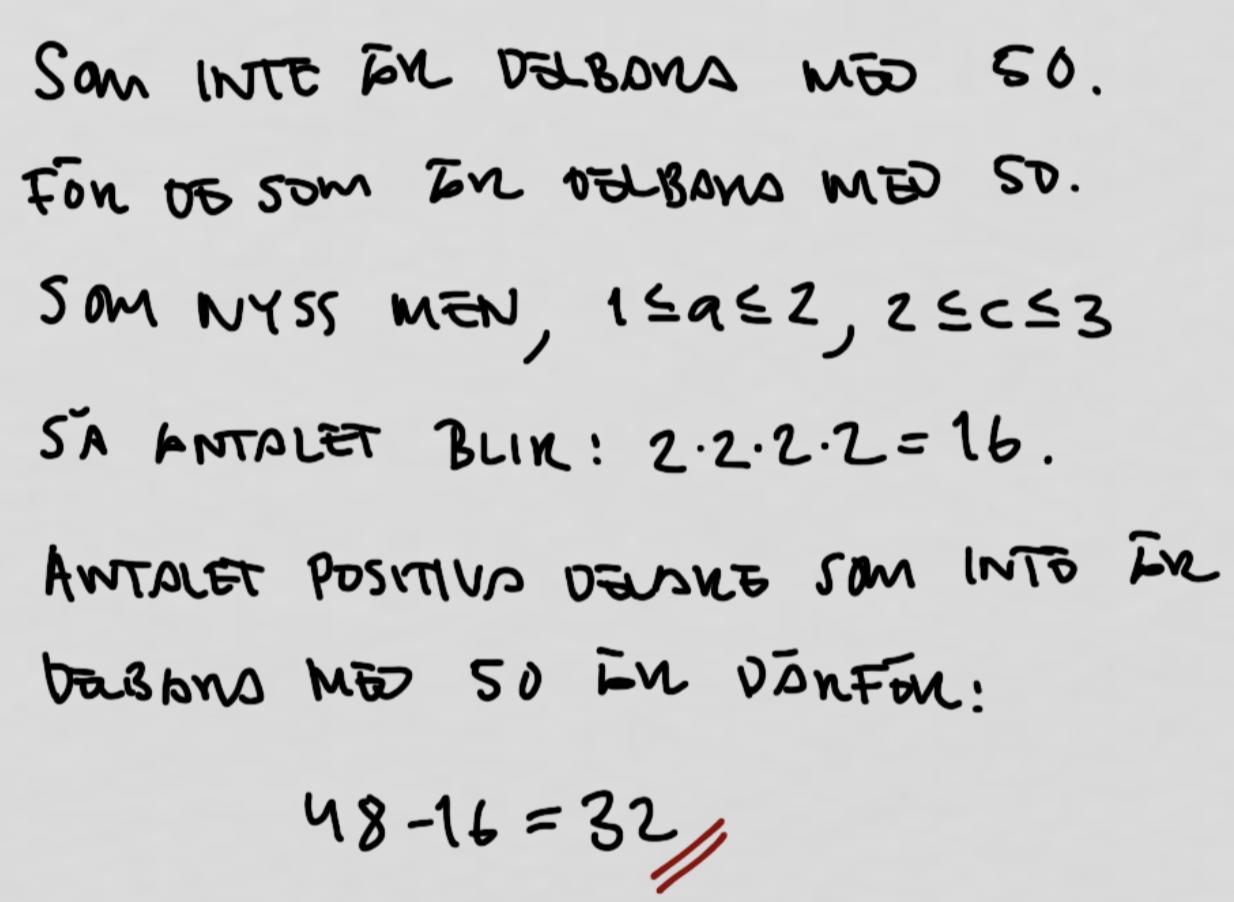 SOM INTE ÄR DELBARA MED 50.
FÖR DE SOM ÄR DELBARA MED 50.
SOM NYSS MEN, 1≤a≤2, 2≤c≤3
SÅ ANTALET BLIR: 2·2·2·2=16.
ANTALET POSITIVA DELARE SOM INTE ÄR
DELBARA MED 50 ÄR DÄRFÖR:
48-16=32